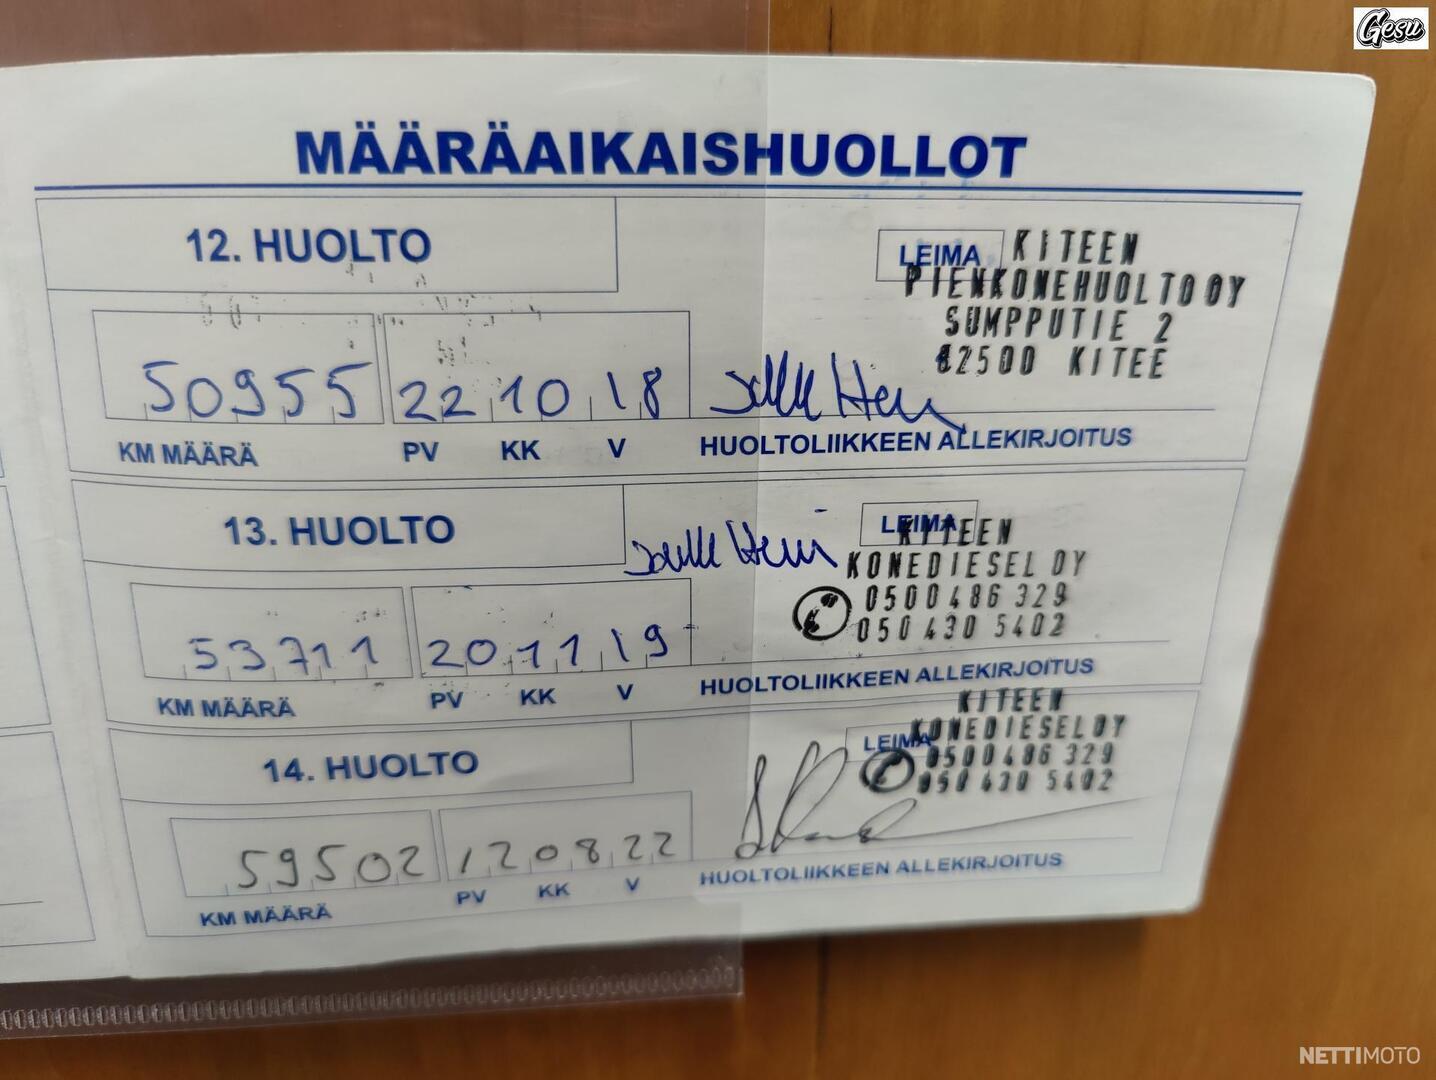 Gesu
MÄÄRÄAIKAISHUOLLOT
12. HUOLTO
LEIMA
KITEEN
PIENKONEHUOLTO OY
SUMPPUTIE 2
82500 KITEE
50955 22 10 18
KM MÄÄRÄ PV KK V HUOLTOLIIKKEEN ALLEKIRJOITUS
13. HUOLTO
LEIMA
KITEEN
KONEDIESEL OY
0500 486 329
050 430 5402
53711 20 11 19
KM MÄÄRÄ PV KK V HUOLTOLIIKKEEN ALLEKIRJOITUS
14. HUOLTO
LEIMA
KITEEN
KONEDIESEL OY
0500 486 329
050 430 5402
59502 12 08 22
KM MÄÄRÄ PV KK V HUOLTOLIIKKEEN ALLEKIRJOITUS
NETTIMOTO